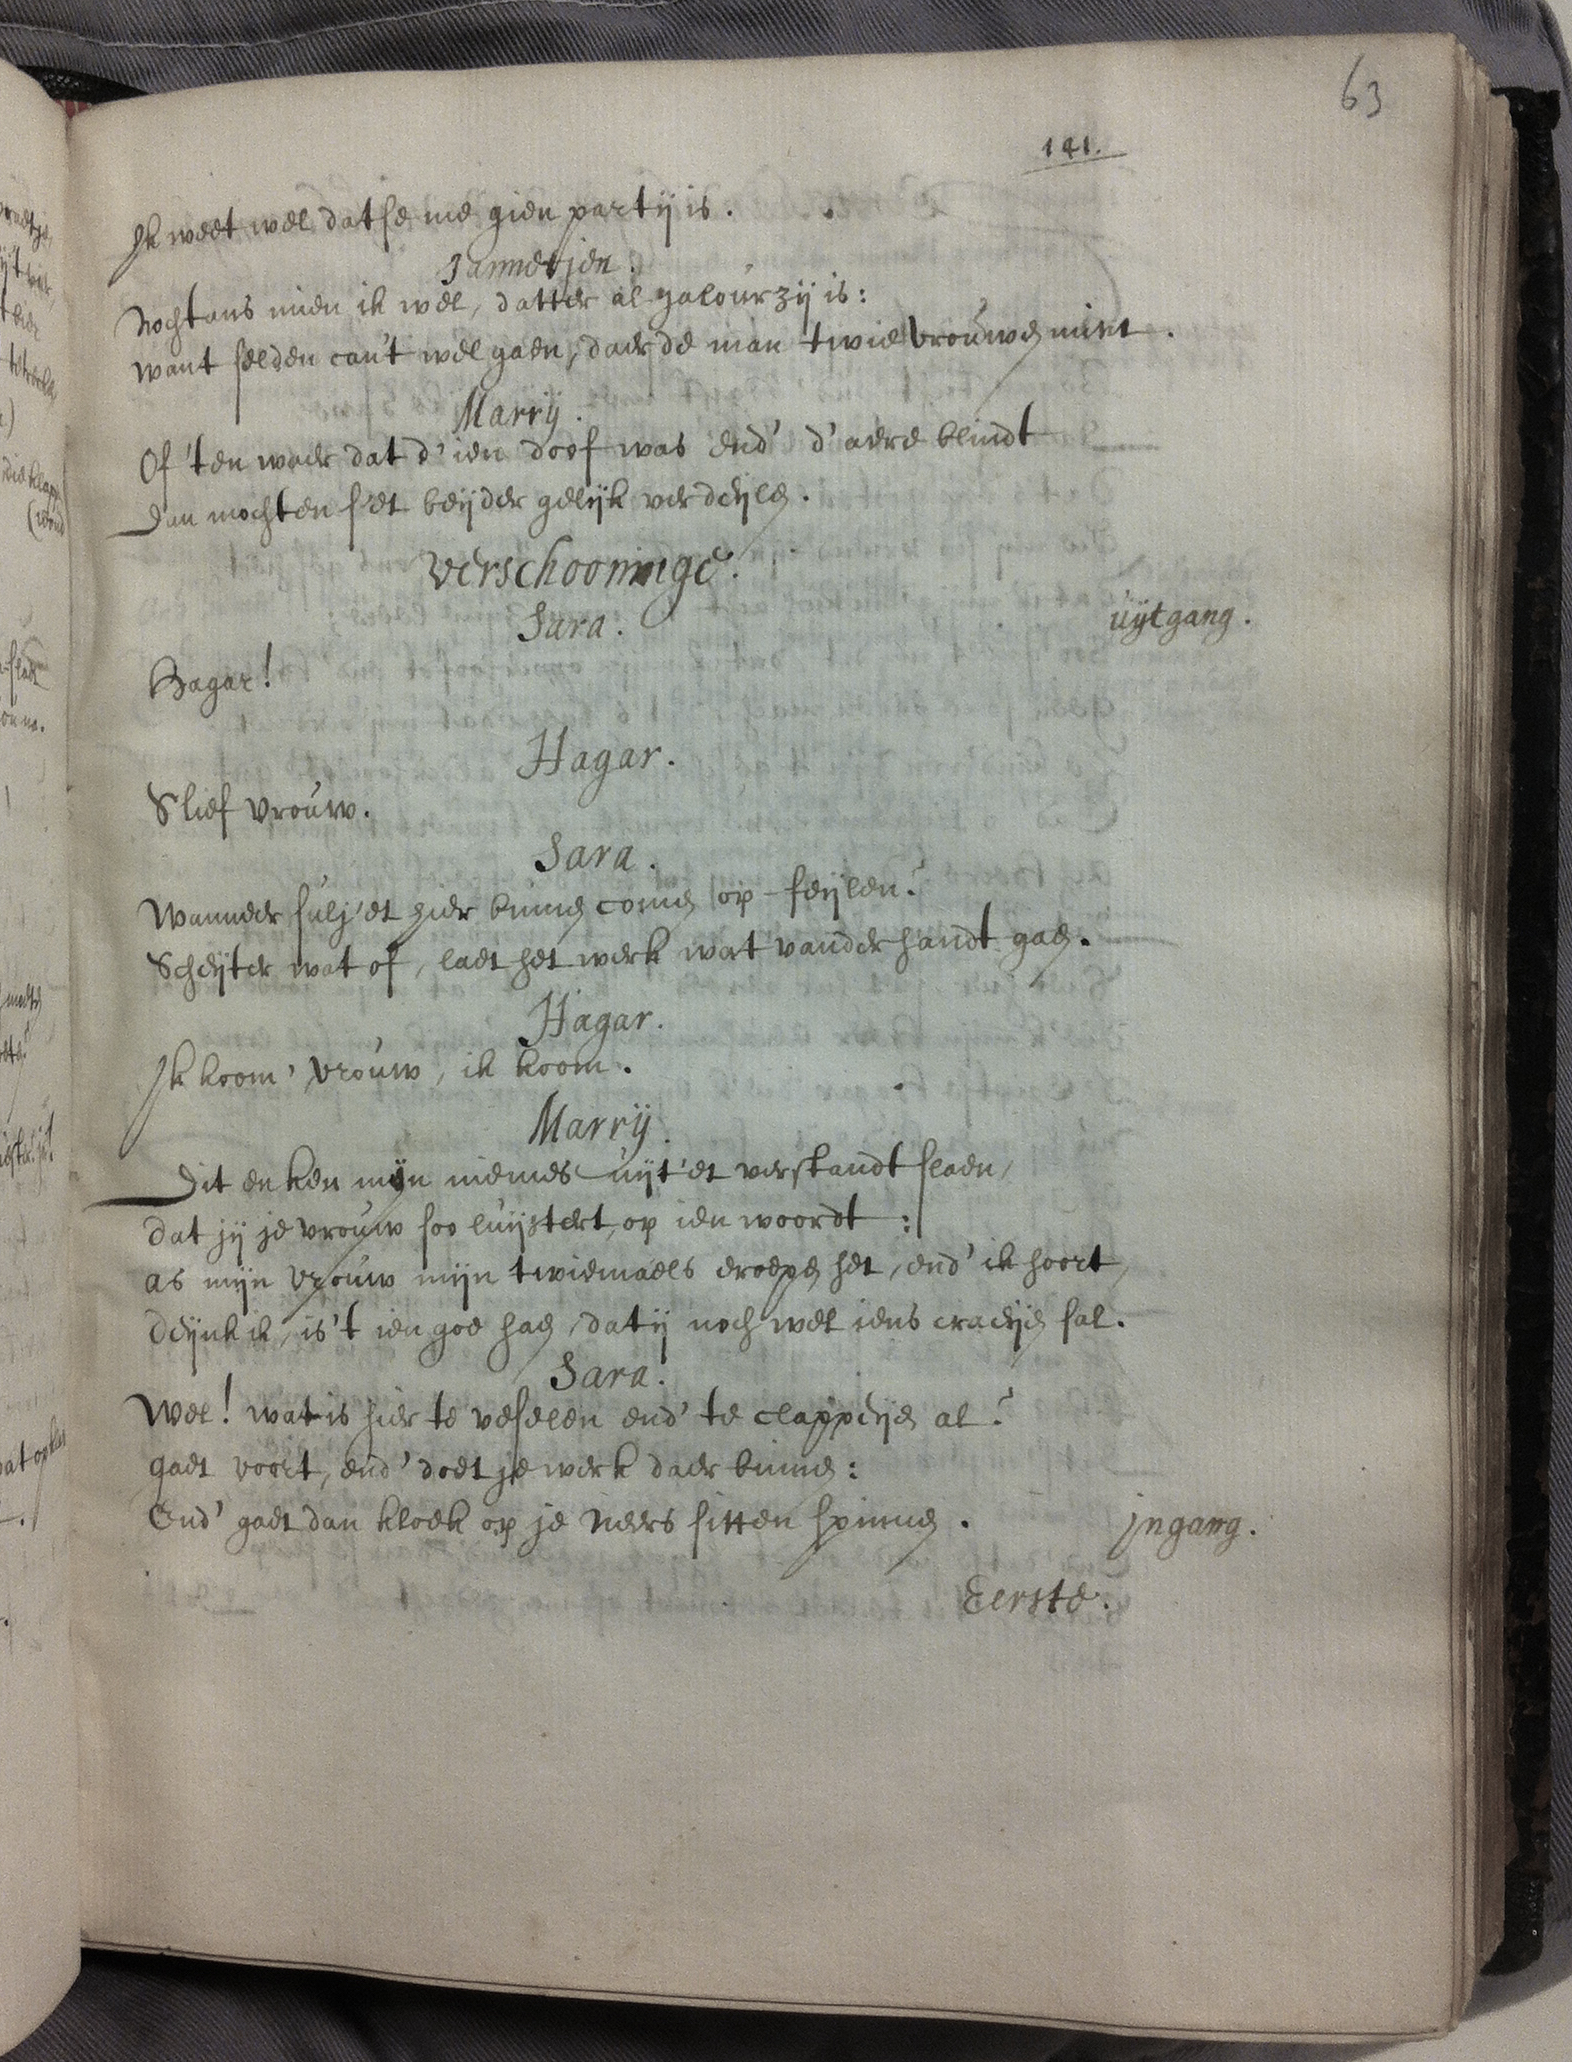 63
141.
Ik weet wel datse me gien partij is.
Jannetjen.
Nochtans mien ik wel, datter al jalourzij is:
want selden can't wel gaen, daer de man twie vrouwen mint.
Marrij.
Of 'ten waer dat d'ien doof was end' d'aere blindt
Dan mochten s'et beijder gelijk verdeijlen.
Verschooninge.
Sara.
uijtgang.
Hagar!
Hagar.
S lief vrouw.
Sara.
Wanneer sulj'et hier binnen comen op-feijlen?
Scheijter wat of, laet het werk wat vander handt gaen.
Hagar.
Ik koom' vrouw, ik koom.
Marrij.
Dit en ken mijn niemes uijt'et verstandt slaen,
dat jij je vrouw soo luijstert, op ien woordt:
as mijn vrouw mijn twiemaels eroepen het, end' ik hoort,
deijnk ik, is't ien goe haen, dat ij noch wel iens craeijen sal.
Sara.
Wel! wat is hier te veselen end' te clappeijen al?
gaet voort, end' doet je werk daer binnen:
End' gaet dan kloek op je neers sitten spinnen.
jngang.
Eerste.